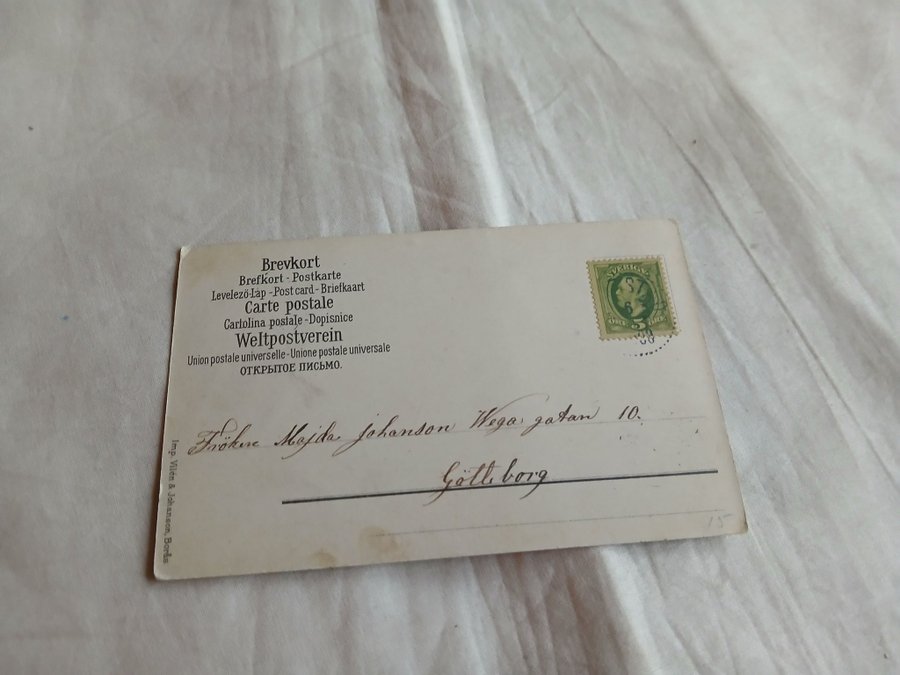 Brevkort
Brefkort - Postkarte
Levelező-Lap - Post card - Briefkaart
Carte postale
Cartolina postale - Dopisnice
Weltpostverein
Union postale universelle - Unione postale universale
ОТКРЫТОЕ ПИСЬМО.
SVERIGE
5
Fröken Majda Johanson Wega gatan 10.
Götteborg
15
Imp. Vilén & Johanson, Borås